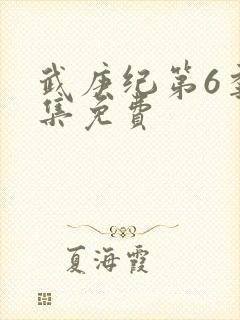 武庚纪第6季
集免费
夏海霞